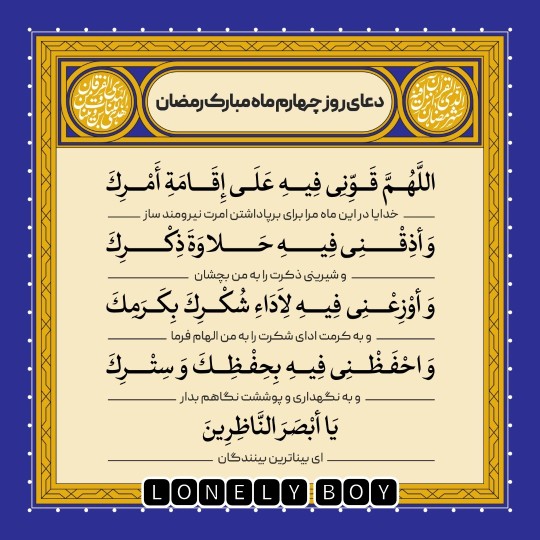 دعای روز چهارم ماه مبارک رمضان
اللَّهُمَّ قَوِّنِی فِیهِ عَلَی إِقَامَةِ أَمْرِكَ
خدایا در این ماه مرا برای برپاداشتن امرت نیرومند ساز
وَ أَذِقْنِی فِیهِ حَلاوَةَ ذِكْرِكَ
و شیرینی ذکرت را به من بچشان
وَ أَوْزِعْنِی فِیهِ لِأَدَاءِ شُكْرِكَ بِكَرَمِكَ
و به کرمت ادای شکرت را به من الهام فرما
وَ احْفَظْنِی فِیهِ بِحِفْظِكَ وَ سِتْرِكَ
و به نگهداری و پوششت نگاهم بدار
یَا أَبْصَرَ النَّاظِرِینَ
ای بیناترین بینندگان
LONELY BOY